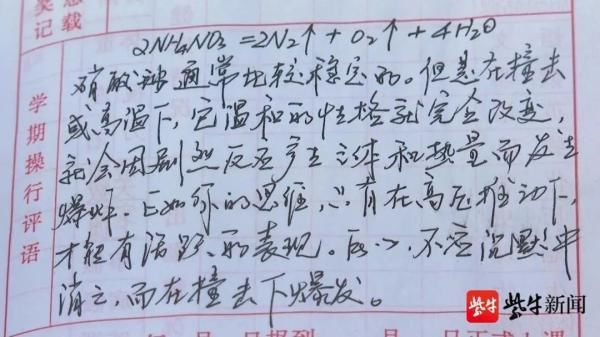 记载
2NH₄NO₃ = 2N₂↑ + O₂↑ + 4H₂O
硝酸铵通常比较稳定的。但是在撞击
或高温下,它温和的性格就完全改变,
就会因剧烈反应产生气体和热量而发生
爆炸。比如你的思维,只有在高压推动下,
才能有活跃的表现。所以,不应沉默中
消亡,而在撞击下爆发。
学期操行评语
紫牛 紫牛新闻